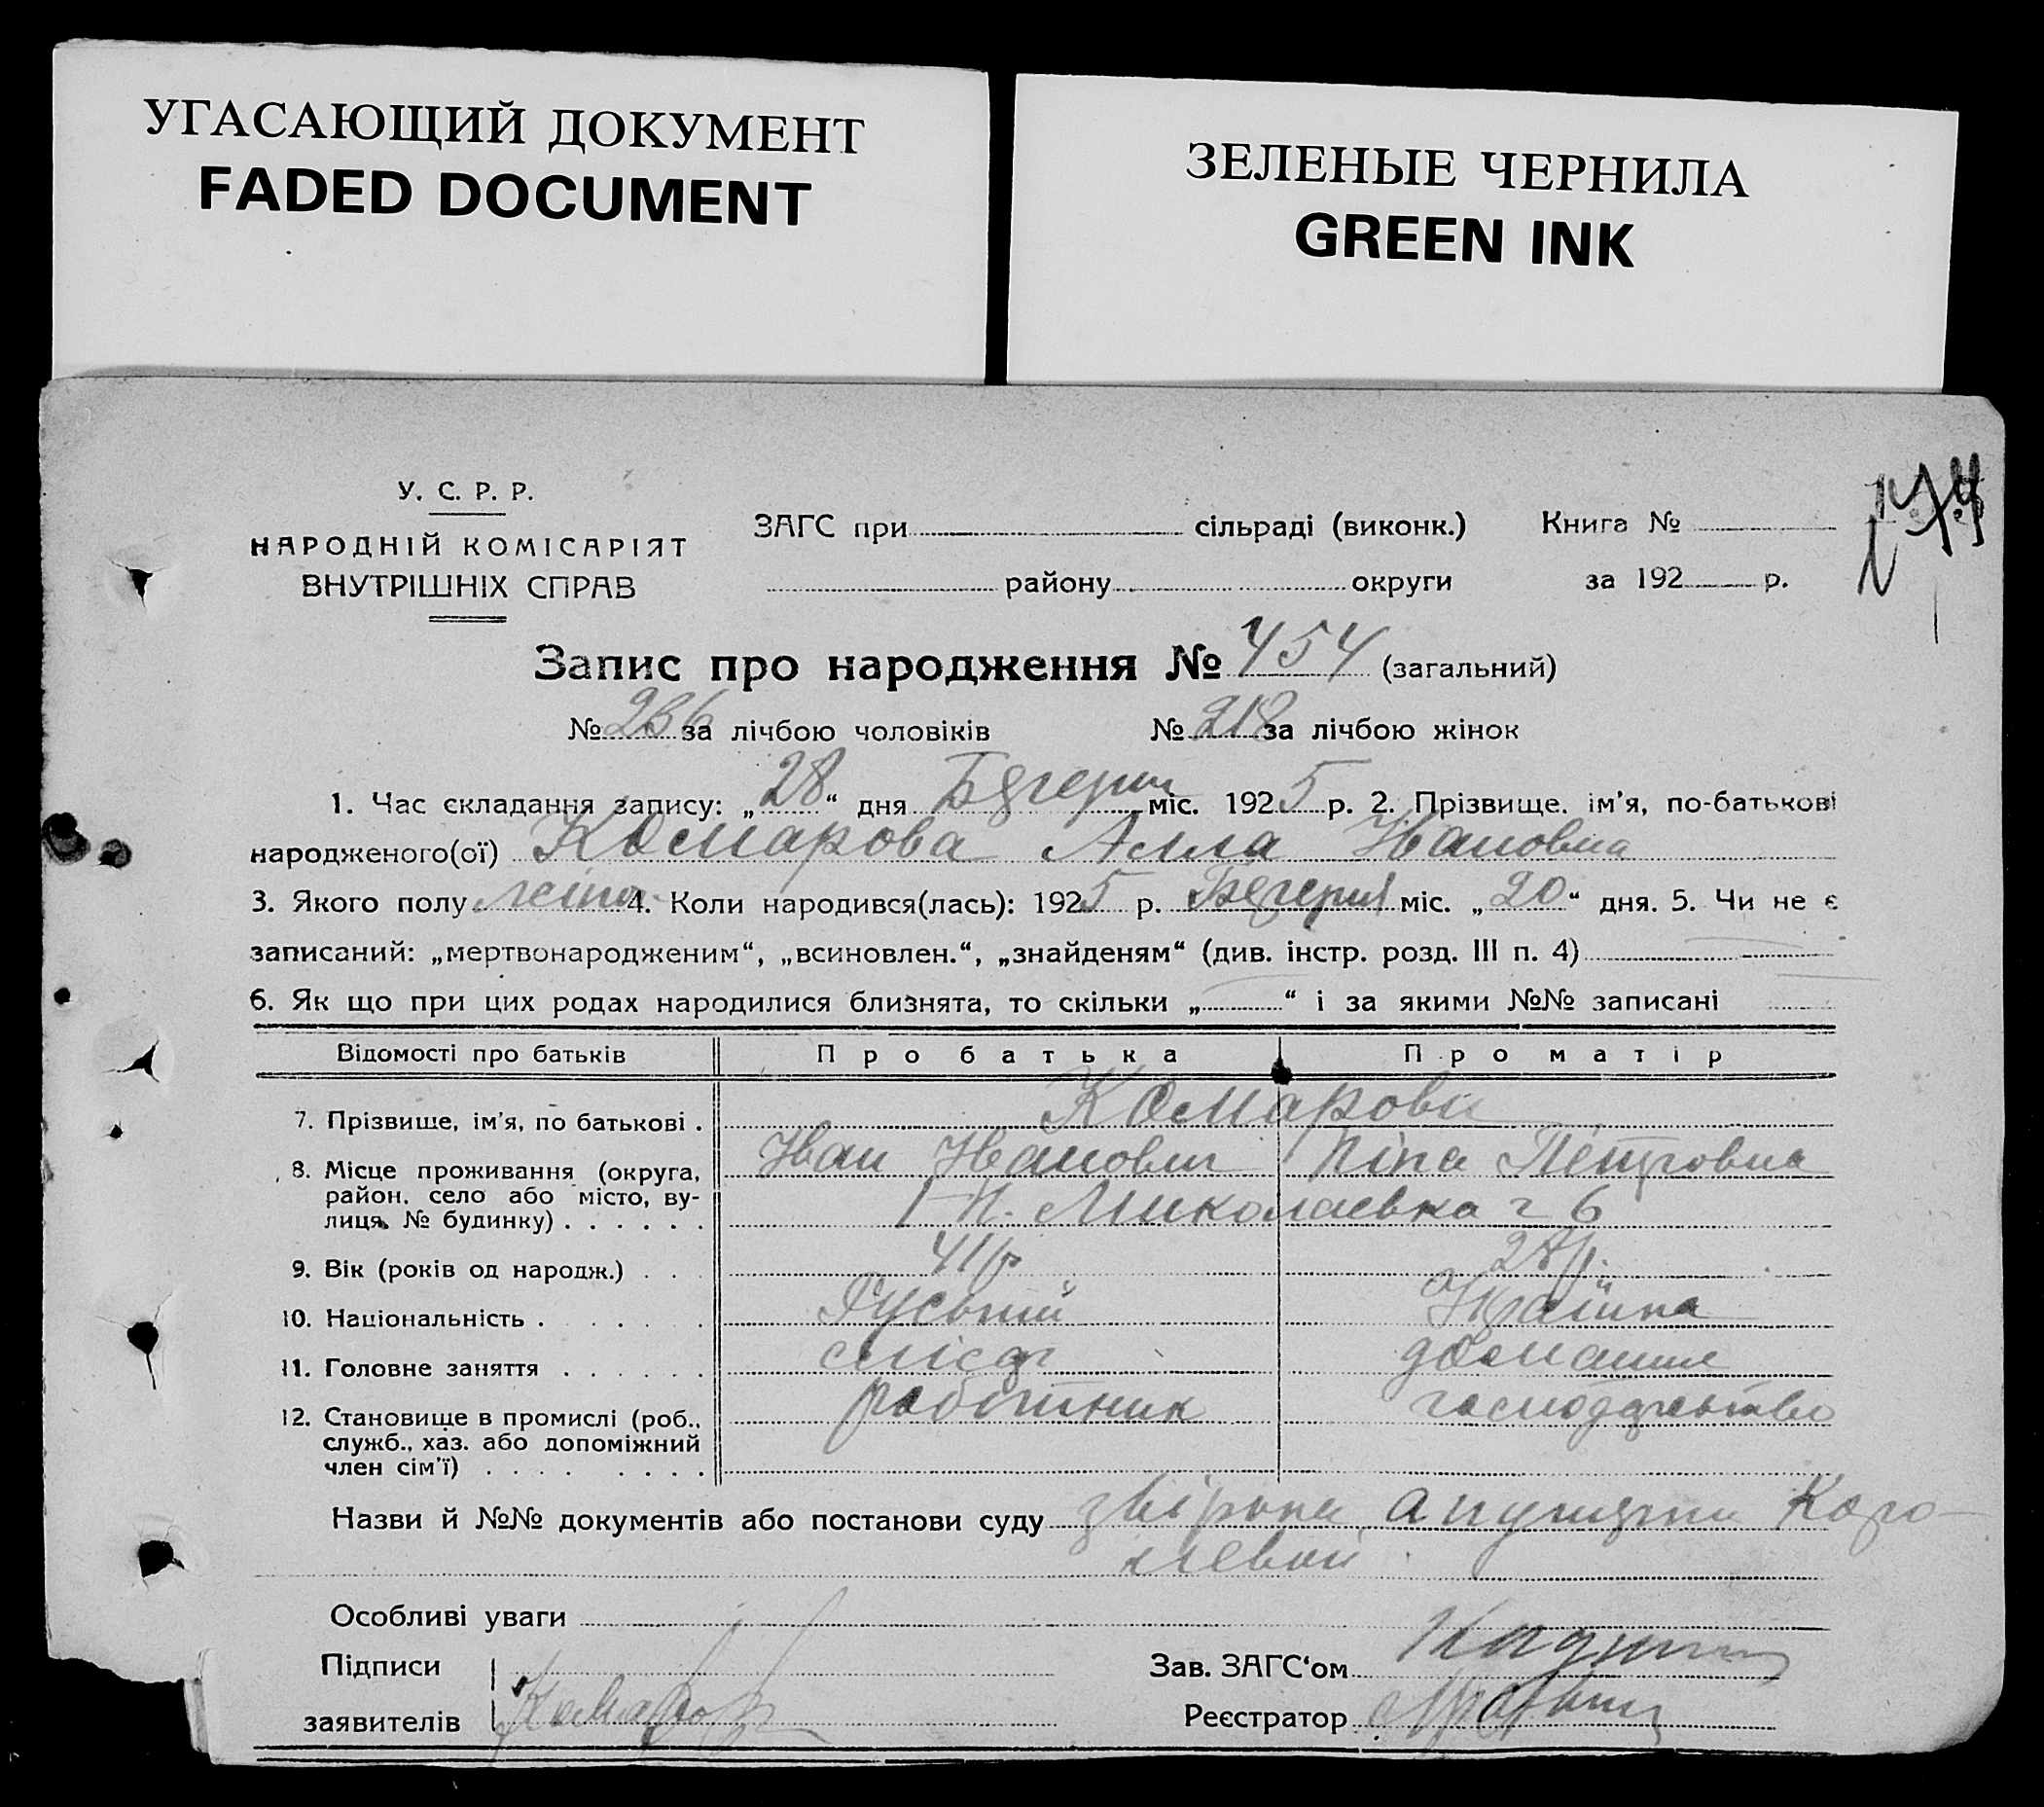 УГАСАЮЩИЙ ДОКУМЕНТ
FADED DOCUMENT
ЗЕЛЕНЫЕ ЧЕРНИЛА
GREEN INK
У. С. Р. Р.
НАРОДНІЙ КОМІСАРІЯТ
ВНУТРІШНІХ СПРАВ
ЗАГС при сільраді (виконк.) Книга №
району округи за 192 р.
Запис про народження № 454 (загальний)
№ 236 за лічбою чоловіків № 218 за лічбою жінок
1. Час складання запису: „28“ дня міс. 1925 р. 2. Прізвище, ім'я, по-батькові
народженого(ої) Комарова Алла Ивановна
3. Якого полу 4. Коли народився(лась): 1925 р. міс. „20“ дня. 5. Чи не є
записаний: „мертвонародженим“, „всиновлен.“, „знайденям“ (див. інстр. розд. III п. 4)
6. Як що при цих родах народилися близнята, то скільки „ “ і за якими №№ записані
Відомості про батьків Про батька Про матір
7. Прізвище, ім'я, по батькові . Комарови
Иван Иванович Ніна Петровна
8. Місце проживання (округа, район, село або місто, вулиця, № будинку) . . . . . . Миколаевка 6
9. Вік (років од народж.) . . . 41 р. 28 р.
10. Національність . . . . . . Руський Українка
11. Головне заняття . . . . . . домашне
12. Становище в промислі (роб., служб., хаз. або допоміжний член сім'ї) . . . . . . . . работник господарьство
Назви й №№ документів або постанови суду Коро-
левой
Особливі уваги
Підписи Зав. ЗАГС'ом
заявителів Комаров Реєстратор